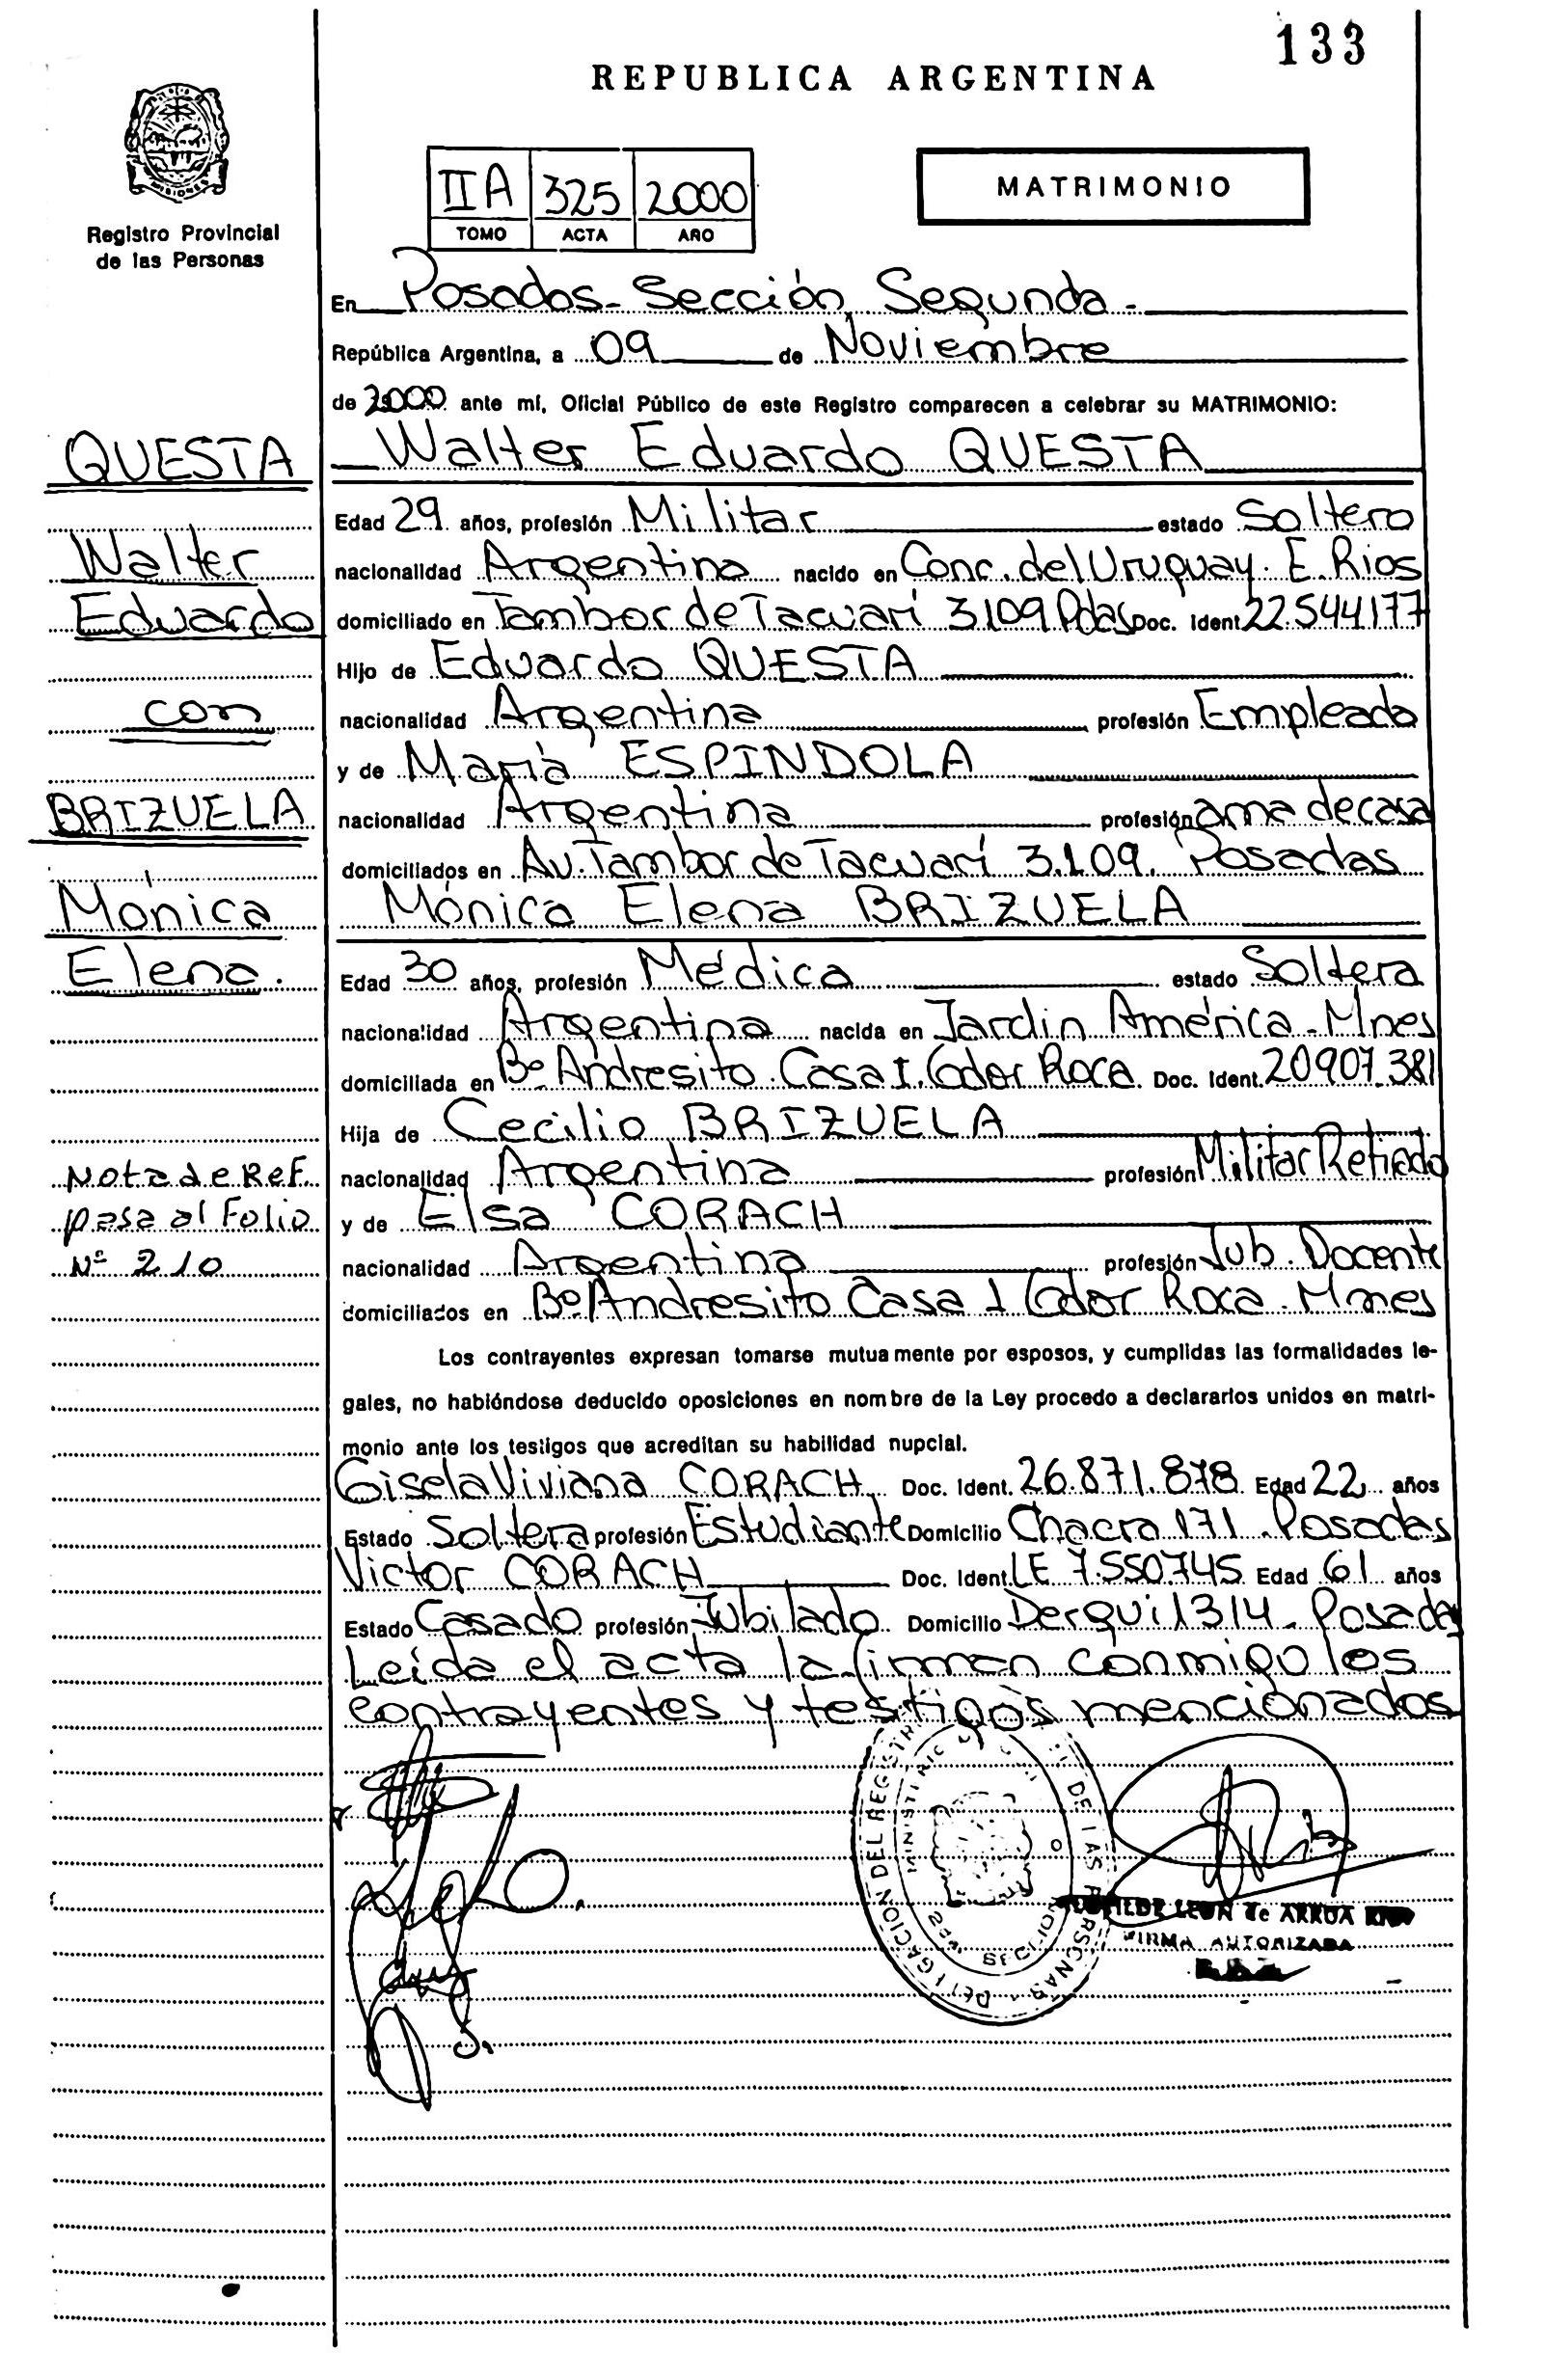 133
REPUBLICA ARGENTINA
MISIONES
Registro Provincial
de las Personas
IIA 325 2000
TOMO ACTA AÑO
MATRIMONIO
En Posadas - Sección Segunda -
República Argentina, a 09 de Noviembre
de 2000 ante mí, Oficial Público de este Registro comparecen a celebrar su MATRIMONIO:
QUESTA
Walter
Eduardo
con
BRIZUELA
Mónica
Elena.
Nota de Ref.
pasa al Folio
Nº 210
Walter Eduardo QUESTA
Edad 29 años, profesión Militar estado Soltero
nacionalidad Argentina nacido en Conc. del Uruguay. E. Rios
domiciliado en Tambor de Tacuarí 3109 Pdas Doc. Ident 22.544177
Hijo de Eduardo QUESTA
nacionalidad Argentina profesión Empleado
y de María ESPINDOLA
nacionalidad Argentina profesión ama de casa
domiciliados en Av. Tambor de Tacuarí 3.109. Posadas
Mónica Elena BRIZUELA
Edad 30 años, profesión Médica estado Soltera
nacionalidad Argentina nacida en Jardin América - Mnes
domiciliada en Bº Andresito. Casa I. Gdor Roca Doc. Ident. 20907.381
Hija de Cecilio BRIZUELA
nacionalidad Argentina profesión Militar Retirado
y de Elsa CORACH
nacionalidad Argentina profesión Jub. Docente
domiciliados en Bº Andresito Casa 1 Gdor Roca. Mnes
Los contrayentes expresan tomarse mutuamente por esposos, y cumplidas las formalidades le-
gales, no habiéndose deducido oposiciones en nombre de la Ley procedo a declararlos unidos en matri-
monio ante los testigos que acreditan su habilidad nupcial.
Gisela Viviana CORACH Doc. Ident. 26.871.878 Edad 22 años
Estado Soltera profesión Estudiante Domicilio Chacra 171 - Posadas
Victor CORACH Doc. Ident. LE 7.550.745 Edad 61 años
Estado Casado profesión Jubilado Domicilio Derqui 1314 - Posadas
Leída el acta la firman conmigo los
contrayentes y testigos mencionados
DELEGACION DEL REGISTR DE LAS PERSONAS
MINISTERIO
LEON de ARRUA
FIRMA AUTORIZADA